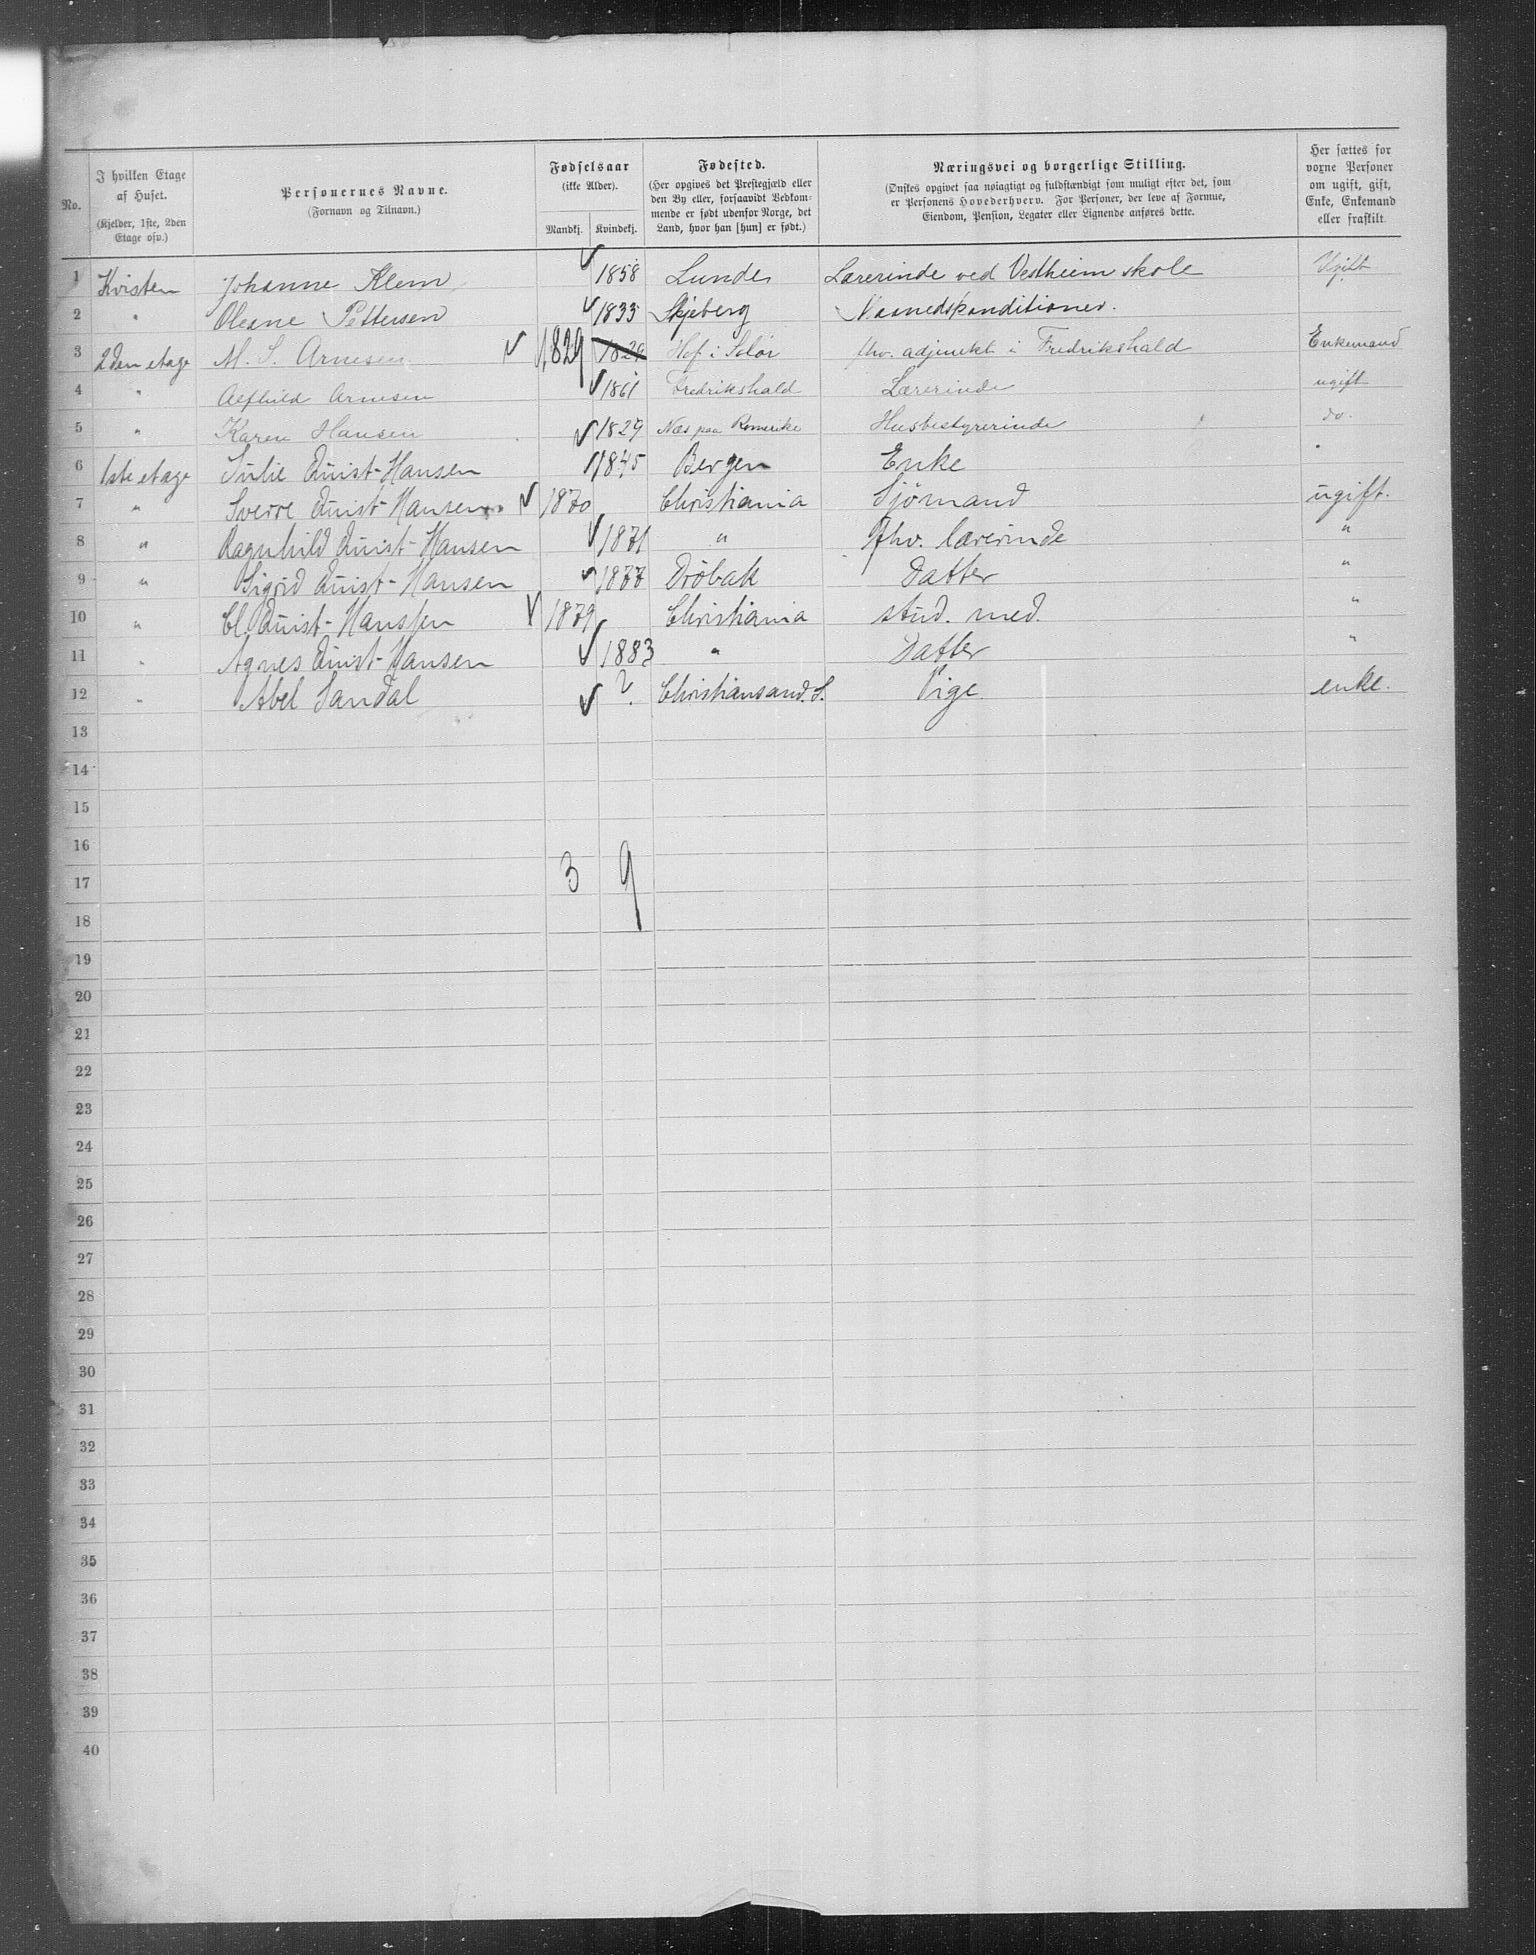 No.
I hvilken Etage af Huset.
(Kjelder, 1ste, 2den Etage osv.)
Personernes Navne.
(Fornavn og Tilnavn.)
Fødselsaar
(ikke Alder).
Mandkj. Kvindekj.
Fødested.
(Her opgives det Prestegjæld eller den By eller, forsaavidt Vedkommende er født udenfor Norge, det Land, hvor han [hun] er født.)
Næringsvei og borgerlige Stilling.
(Ønskes opgivet saa nøiagtigt og fuldstændigt som muligt efter det, som er Personens Hovederhverv. For Personer, der leve af Formue, Eiendom, Pension, Legater eller Lignende anføres dette.
Her sættes for voxne Personer om ugift, gift, Enke, Enkemand eller fraskilt.
1 Kvisten Johanne Klem 1858 Lunde Lærerinde ved Vestheim skole Ugift
2 " Oleane Pettersen 1833 Skjeberg
3 2den etage M. S. Arnesen 1829 1829 Hof i Solør fhv. adjunkt i Fredrikshald Enkemand
4 " Alfhild Arnesen 1861 Fredrikshald Lærerinde ugift
5 " Karen Hansen 1829 Næs paa Romerike Husbestyrerinde do.
6 1ste etage Julie Quist-Hansen 1845 Bergen Enke "
7 " Sverre Quist-Hansen 1870 Christiania Sjömand ugift.
8 " Ragnhild Quist-Hansen 1871 " fhv. lærerinde "
9 " Sigrid Quist-Hansen 1877 Dröbak Datter "
10 " Cl. Quist-Hansen 1879 Christiania stud. med. "
11 " Agnes Quist-Hansen 1883 " Datter "
12 " Abel Sandal ? Christiansand. S. Pige enke.
13
14
15
16
17 3 9
18
19
20
21
22
23
24
25
26
27
28
29
30
31
32
33
34
35
36
37
38
39
40